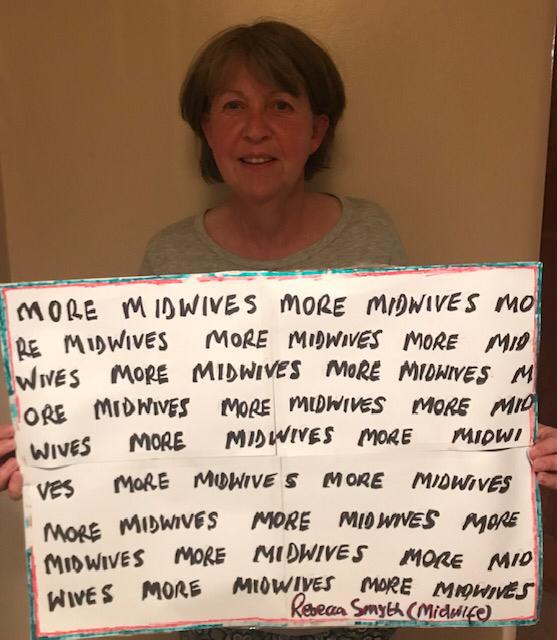 MORE MIDWIVES MORE MIDWIVES MO
RE MIDWIVES MORE MIDWIVES MORE MID
WIVES MORE MIDWIVES MORE MIDWIVES M
ORE MIDWIVES MORE MIDWIVES MORE MID
WIVES MORE MIDWIVES MORE MIDWI
VES MORE MIDWIVES MORE MIDWIVES
MORE MIDWIVES MORE MIDWIVES MORE
MIDWIVES MORE MIDWIVES MORE MID
WIVES MORE MIDWIVES MORE MIDWIVES
Rebecca Smyth (Midwife)